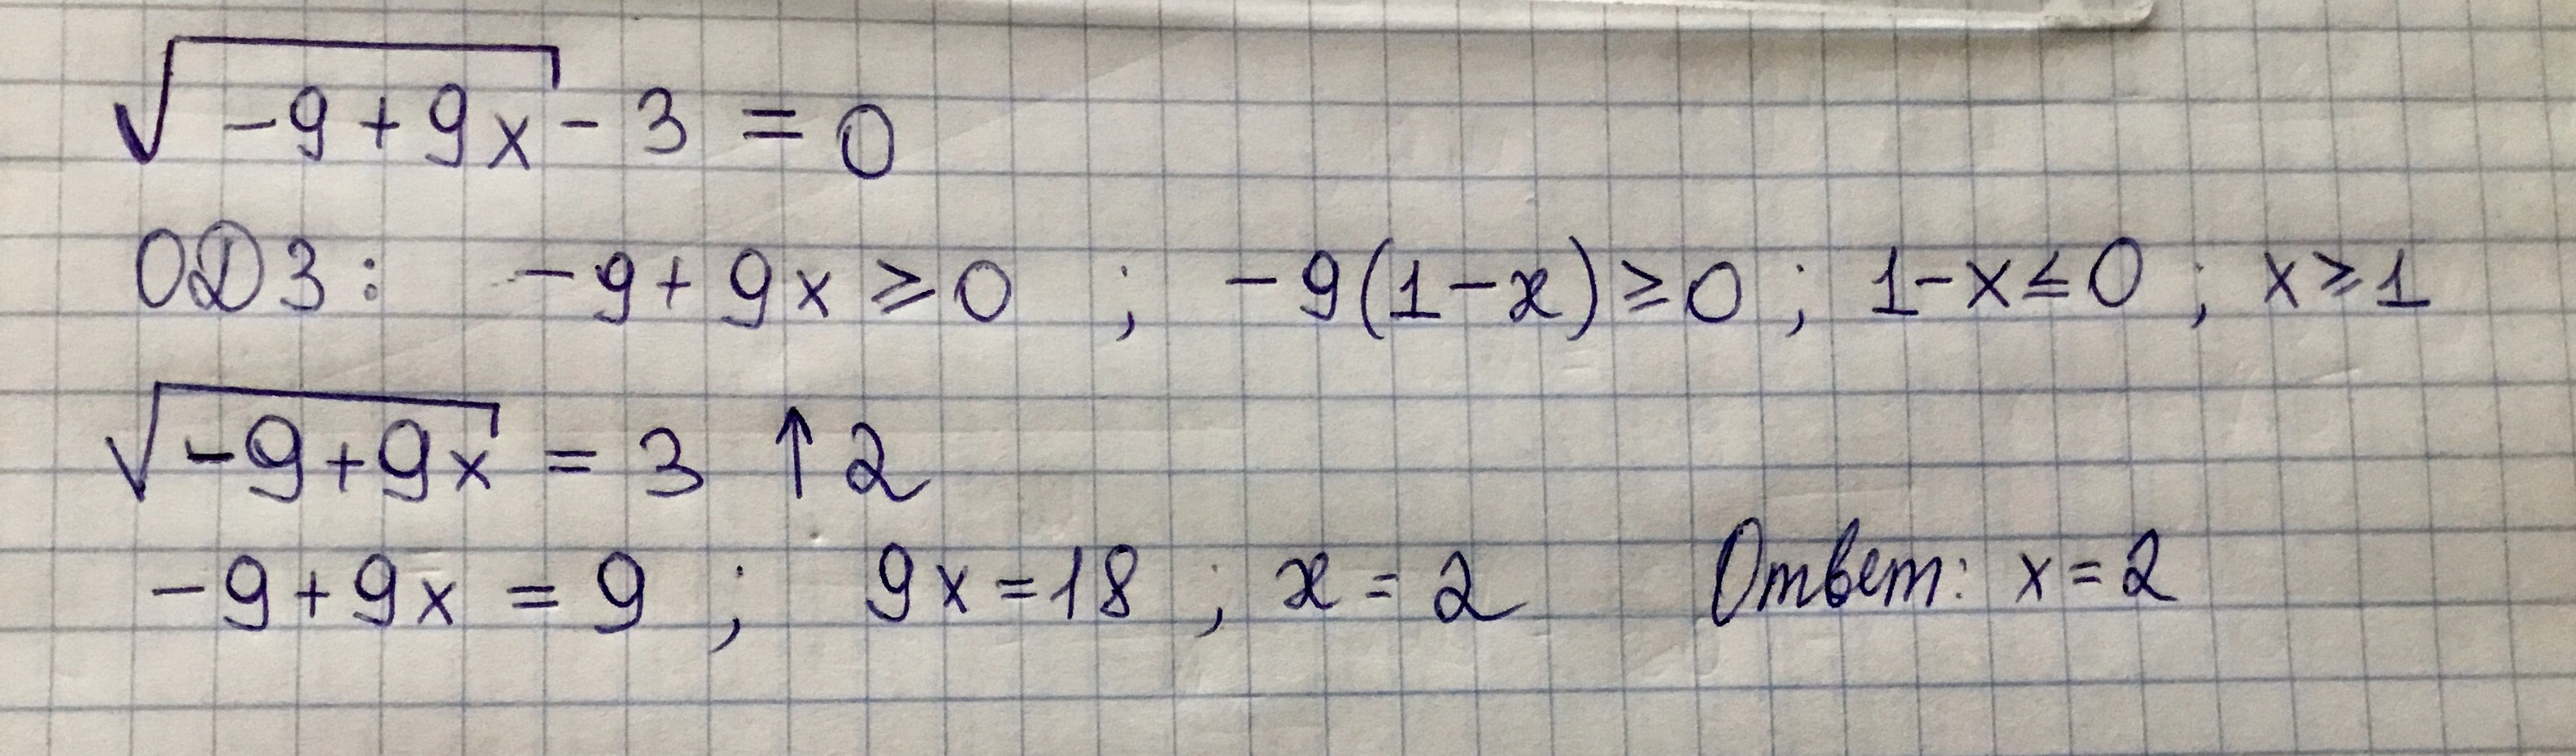 √(-9+9x) - 3 = 0
ОДЗ: -9+9x ⩾ 0 ; -9(1-x) ⩾ 0 ; 1-x ⩽ 0 ; x ⩾ 1
√(-9+9x) = 3 ↑2
-9+9x = 9 ; 9x = 18 ; x = 2 Ответ: x = 2